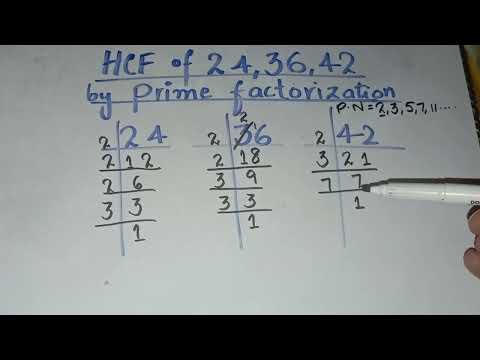 HCF of 24, 36, 42
by Prime factorization
P.N = 2, 3, 5, 7, 11 ....
2 24
2 12
2 6
3 3
1
2 36
2 18
3 9
3 3
1
2 42
3 21
7 7
1